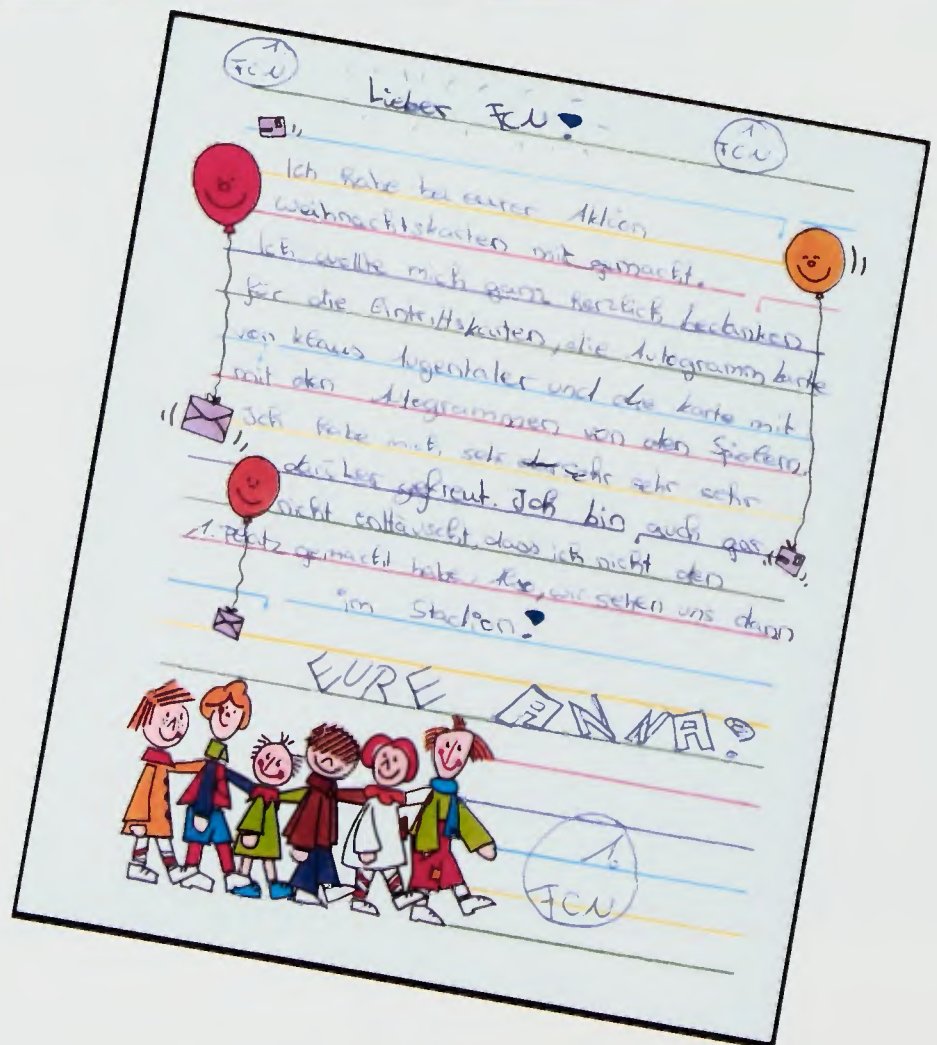 1. FCN
Lieber FCN!
1. FCN
Ich habe bei eurer Aktion
Weihnachtskarten mit gemacht.
Ich wollte mich ganz herzlich bedanken
für die Eintrittskarten, die Autogrammkarte
von Klaus Augentaler und die Karte mit
mit den Autogrammen von den Spielern.
Ich habe mich sehr sehr sehr sehr
darüber gefreut. Ich bin auch gar
nicht enttäuscht, dass ich nicht den
1. Platz gemacht habe. Also, wir sehen uns dann
im Stadion!
EURE ANNA!
1.
FCN